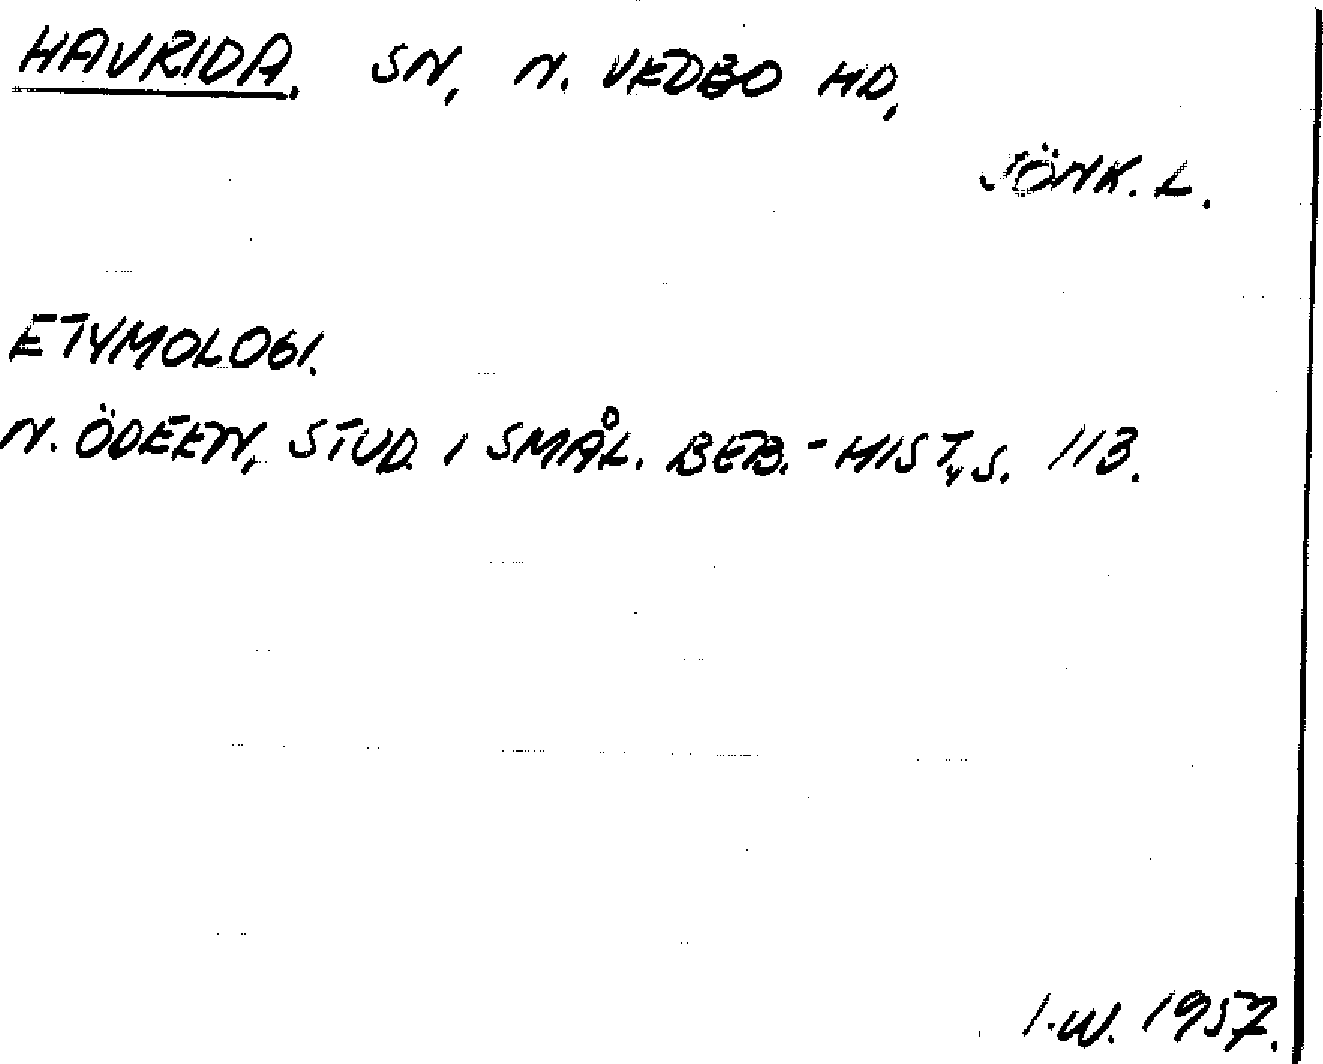 HAURIDA. SN, N. VEDBO HD,
JÖNK. L.
ETYMOLOGI.
N. ÖDEEN, STUD. I SMÅL. BEB.-HIST., S. 113.
I.W. 1957.